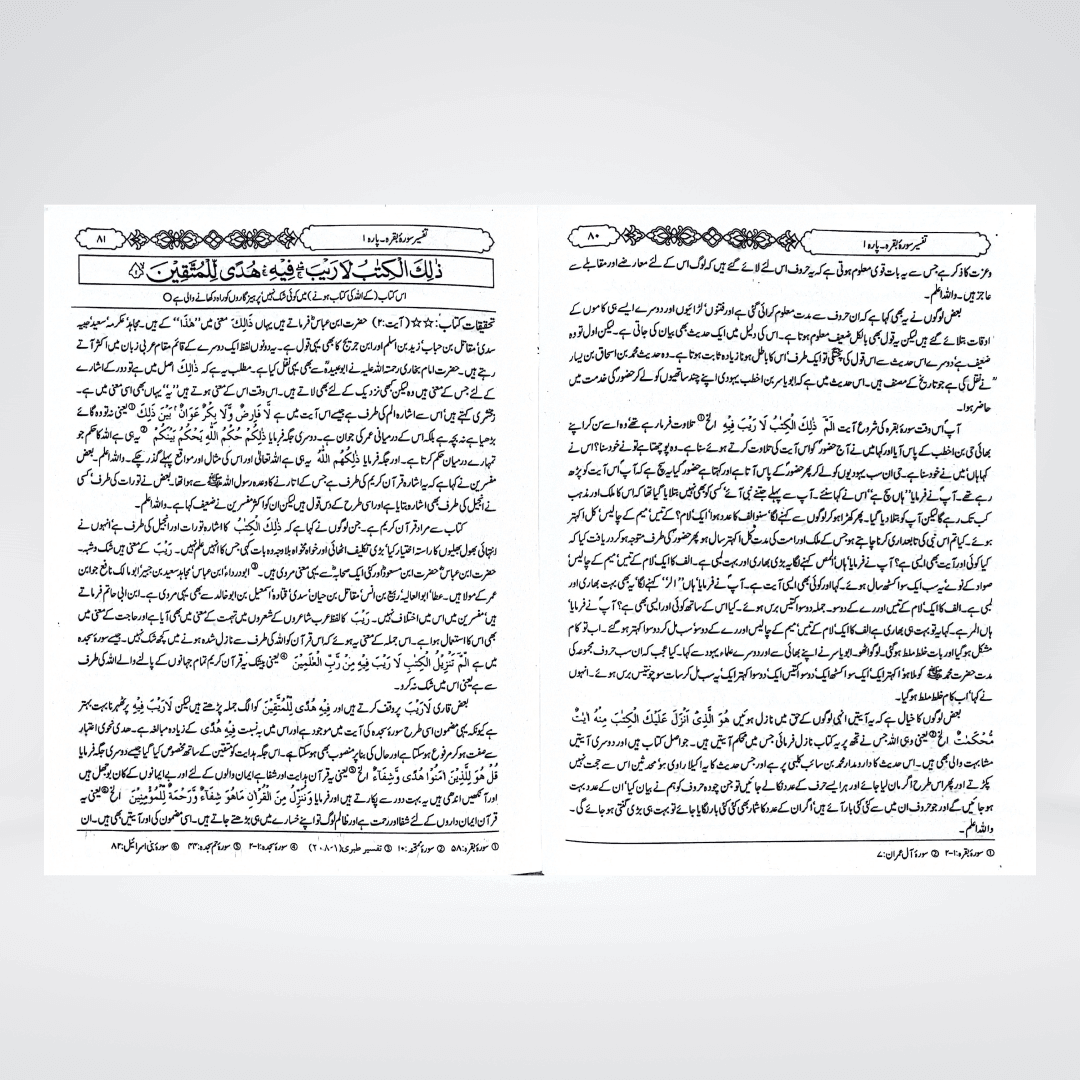 ۸۰
تفسیر سورۂ بقرہ۔ پارہ ۱
وعزت کا ذکر ہے جس سے یہ بات قوی معلوم ہوتی ہے کہ یہ حروف اس لئے لائے گئے ہیں کہ لوگ اس کے لئے معارضے اور مقابلے سے
عاجز ہیں۔ واللہ اعلم۔
بعض لوگوں نے یہ بھی کہا ہے کہ ان حروف سے مدت معلوم کرائی گئی ہے اور فتنوں' لڑائیوں اور دوسرے ایسے ہی کاموں کے
اوقات بتلائے گئے ہیں لیکن یہ قول بھی بالکل ضعیف معلوم ہوتا ہے۔ اس کی دلیل میں ایک حدیث بھی بیان کی جاتی ہے۔ لیکن اول تو وہ
ضعیف ہے' دوسرے اس حدیث سے اس قول کی پختگی تو ایک طرف' اس کا باطل ہونا زیادہ ثابت ہوتا ہے۔ وہ حدیث محمد بن اسحاق بن یسار
نے نقل کی ہے جو تاریخ کے مصنف ہیں۔ اس حدیث میں ہے کہ ابویاسر بن اخطب یہودی اپنے چند ساتھیوں کو لے کر حضور کی خدمت میں
حاضر ہوا۔
آپ اس وقت سورۂ بقرہ کی شروع آیت الٓمّٓ ذٰلِكَ الْكِتٰبُ لَا رَيْبَ فِيْهِ الخ① تلاوت فرما رہے تھے' وہ اسے سن کر اپنے
بھائی حی بن اخطب کے پاس آیا اور کہا میں نے آج حضور کو اس آیت کی تلاوت کرتے ہوئے سنا ہے۔ وہ پوچھتا ہے تو نے خود سنا؟ اس نے
کہا ہاں' میں نے خود سنا ہے۔ حی ان سب یہودیوں کو لے کر پھر حضور کے پاس آتا ہے اور کہتا ہے حضور کیا یہ سچ ہے کہ آپ اس آیت کو پڑھ
رہے تھے۔ آپ نے فرمایا ''ہاں سچ ہے'' اس نے کہا سنئے۔ آپ سے پہلے جتنے نبی آئے' کسی کو بھی نہیں بتلایا گیا تھا کہ اس کا ملک اور مذہب
کب تک رہے گا لیکن آپ کو بتلا دیا گیا۔ پھر کھڑا ہو کر لوگوں سے کہنے لگا' سنو الف کا عدد ہوا' ایک' لام کے تیس' میم کے چالیس' کل اکہتر
ہوئے۔ کیا تم اس نبی کی تابعداری کرنا چاہتے ہو جس کے ملک اور امت کی مدت کل اکہتر سال ہو' پھر حضور کی طرف متوجہ ہو کر دریافت کیا کہ
کیا کوئی اور آیت بھی ایسی ہے؟ آپ نے فرمایا' ہاں' المص کہنے لگا یہ بڑی بھاری اور بہت لمبی ہے۔ الف کا ایک' لام کے تیس' میم کے چالیس'
صواد کے نوے' یہ سب ایک سو اکسٹھ سال ہوئے۔ کہا اور کوئی بھی ایسی آیت ہے۔ آپ نے فرمایا' ہاں ''الر'' کہنے لگا' یہ بھی بہت بھاری اور
لمبی ہے۔ الف کا ایک' لام کے تیس اور رے کے دوسو۔ جملہ دوسو اکتیس برس ہوئے۔ کیا اس کے ساتھ کوئی اور ایسی بھی ہے؟ آپ نے فرمایا'
ہاں المر ہے۔ کہا یہ تو بہت ہی بھاری ہے' الف کا ایک' لام کے تیس' میم کے چالیس اور رے کے دوسو' سب مل کر دوسو اکہتر ہو گئے۔ اب تو کام
مشکل ہو گیا اور بات خلط ملط ہو گئی۔ لوگو اٹھو۔ ابویاسر نے اپنے بھائی سے اور دوسرے علماء یہود سے کہا۔ کیا عجب کہ ان سب حروف کے مجموعہ کی
مدت حضرت محمد ﷺ کو ملا ہو' اکہتر ایک' ایک سو اکسٹھ ایک' دوسو اکتیس ایک' دوسو اکہتر ایک' یہ سب مل کر سات سو چونتیس برس ہوئے۔ انہوں
نے کہا' اب کام خلط ملط ہو گیا۔
بعض لوگوں کا خیال ہے کہ یہ آیتیں انہی لوگوں کے حق میں نازل ہوئیں هُوَ الَّذِیْ اَنْزَلَ عَلَيْكَ الْكِتٰبَ مِنْهُ اٰيٰتٌ
مُّحْكَمٰتٌ الخ② یعنی وہی اللہ جس نے تجھ پر یہ کتاب نازل فرمائی جس میں محکم آیتیں ہیں۔ جو اصل کتاب ہیں اور دوسری آیتیں
مشابہت والی بھی ہیں۔ اس حدیث کا دارومدار محمد بن سائب کلبی پر ہے اور جس حدیث کا یہ اکیلا راوی ہو' محدثین اس سے حجت نہیں
پکڑتے اور پھر اس طرح اگر مان لیا جائے اور ہر ایسے حرف کے عدد نکالے جائیں تو جن چودہ حروف کو ہم نے بیان کیا' ان کے عدد بہت
ہو جائیں گے اور جو حروف ان میں سے کئی کئی بار آئے ہیں' اگر ان کے عدد کا شمار بھی کئی کئی بار لگایا جائے تو بہت ہی بڑی گنتی ہو جائے گی۔
واللہ اعلم۔
① سورۂ بقرہ:۱-۲ ② سورۂ آل عمران:۷
۸۱
تفسیر سورۂ بقرہ۔ پارہ ۱
ذٰلِكَ الْكِتٰبُ لَا رَيْبَ ۛ فِيْهِ ۛ هُدًى لِّلْمُتَّقِيْنَ
اس کتاب (کے اللہ کی کتاب ہونے) میں کوئی شک نہیں' پرہیزگاروں کو راہ دکھانے والی ہے ○
تحقیقات کتاب: ☆☆ (آیت:۲) حضرت ابن عباسؓ فرماتے ہیں یہاں ذَالِكَ معنی میں ''هٰذَا'' کے ہیں۔ مجاہد' عکرمہ' سعید' جبیر
سدی' مقاتل بن حباب' زید بن اسلم اور ابن جریج کا بھی یہی قول ہے۔ یہ دونوں لفظ ایک دوسرے کے قائم مقام عربی زبان میں اکثر آتے
رہتے ہیں۔ حضرت امام بخاری رحمتہ اللہ علیہ نے ابوعبیدہؒ سے بھی یہی نقل کیا ہے۔ مطلب یہ ہے کہ ذَالِكَ اصل میں ہے تو دور کے اشارے
کے لئے جس کے معنی ہیں وہ لیکن کبھی نزدیک کے لئے بھی لاتے ہیں۔ اس وقت اس کے معنی ہوتے ہیں ''یہ'' یہاں بھی اسی معنی میں ہے۔
زمخشری کہتے ہیں' اس سے اشارہ الم کی طرف ہے جیسے اس آیت میں ہے لَّا فَارِضٌ وَّلَا بِكْرٌ عَوَانٌۢ بَيْنَ ذٰلِكَ ① یعنی نہ تو وہ گائے
بڑھیا ہے نہ بچہ ہے بلکہ اس کے درمیانی عمر کی جوان ہے۔ دوسری جگہ فرمایا ذٰلِكُمْ حُكْمُ اللّٰهِ يَحْكُمُ بَيْنَكُمْ ② یہ ہی ہے اللہ کا حکم جو
تمہارے درمیان حکم کرتا ہے۔ اور جگہ فرمایا ذٰلِكُمُ اللّٰهُ یہ ہی ہے اللہ تعالیٰ اور اس کی مثال اور مواقع پہلے گذر چکے۔ واللہ اعلم۔ بعض
مفسرین نے کہا ہے کہ یہ اشارہ قرآن کریم کی طرف ہے جس کے اتارنے کا وعدہ رسول اللہ ﷺ سے ہوا تھا۔ بعض نے تورات کی طرف' کسی
نے انجیل کی طرف بھی اشارہ بتایا ہے اور اسی طرح کے دس قول ہیں لیکن ان کو اکثر مفسرین نے ضعیف کہا ہے۔ واللہ اعلم۔
کتاب سے مراد قرآن کریم ہے۔ جن لوگوں نے کہا ہے کہ ذٰلِكَ الْكِتٰبُ کا اشارہ تورات اور انجیل کی طرف ہے' انہوں نے
انتہائی بھول بھلیوں کا راستہ اختیار کیا' بڑی تکلیف اٹھائی اور خواہ مخواہ بلا وجہ وہ بات کہی جس کا انہیں علم نہیں۔ رَيْبَ کے معنی ہیں شک و شبہ۔
حضرت ابن عباسؓ حضرت ابن مسعودؓ اور کئی ایک صحابہؓ سے یہی معنی مروی ہیں۔③ ابودرداء' ابن عباس' مجاہد' سعید بن جبیر' ابو مالک' نافع جو ابن
عمر کے مولا ہیں۔ عطا' ابوالعالیہ' ربیع بن انس' مقاتل بن حیان' سدی' قتادہ' اسمٰعیل بن ابوخالد سے بھی یہی مروی ہے۔ ابن ابی حاتم فرماتے
ہیں' مفسرین میں اس میں اختلاف نہیں۔ رَيْبَ کا لفظ عرب شاعروں کے شعروں میں تہمت کے معنی میں بھی آیا ہے اور حاجت کے معنی میں
بھی اس کا استعمال ہوا ہے۔ اس جملہ کے معنی یہ ہوئے کہ اس قرآن کو اللہ کی طرف سے نازل شدہ ہونے میں کچھ شک نہیں۔ جیسے سورۂ سجدہ
میں ہے الٓمّٓ تَنْزِيْلُ الْكِتٰبِ لَا رَيْبَ فِيْهِ مِنْ رَّبِّ الْعٰلَمِيْنَ ④ یعنی بیشک یہ قرآن کریم تمام جہانوں کے پالنے والے اللہ کی طرف
سے ہے یعنی اس میں شک نہ کرو۔
بعض قاری لَا رَيْبَ پر وقف کرتے ہیں اور فِيْهِ هُدًى لِّلْمُتَّقِيْنَ کو الگ جملہ پڑھتے ہیں لیکن لَا رَيْبَ فِيْهِ پر ٹھہرنا بہت بہتر
ہے کیونکہ یہی مضمون اسی طرح سورۂ سجدہ کی آیت میں موجود ہے اور اس میں بہ نسبت فِيْهِ هُدًى کے زیادہ مبالغہ ہے۔ ھدی نحوی اعتبار
سے صفت ہو کر مرفوع ہو سکتا ہے اور حال کی بنا پر منصوب بھی ہو سکتا ہے۔ اس جگہ ہدایت کو متقین کے ساتھ مخصوص کیا گیا جیسے دوسری جگہ فرمایا
قُلْ هُوَ لِلَّذِيْنَ اٰمَنُوْا هُدًى وَّشِفَآءٌ الخ⑤ یعنی یہ قرآن ہدایت اور شفا ہے ایمان والوں کے لئے اور بے ایمانوں کے کان بوجھل ہیں
اور آنکھیں اندھی ہیں یہ بہت دور سے پکارتے ہیں اور فرمایا وَنُنَزِّلُ مِنَ الْقُرْاٰنِ مَا هُوَ شِفَآءٌ وَّرَحْمَةٌ لِّلْمُؤْمِنِيْنَ الخ⑥ یعنی یہ
قرآن ایمان داروں کے لئے شفا اور رحمت ہے اور ظالم لوگ تو اپنے خسارے میں ہی بڑھتے جاتے ہیں۔ اسی مضمون کی اور آیتیں بھی ہیں۔ ان
① سورۂ بقرہ:۵۸ ② سورۂ ممتحنہ:۱۰ ③ تفسیر طبری (۱-۲۰۸) ④ سورۂ سجدہ:۱-۲ ⑤ سورۂ حم سجدہ:۴۴ ⑥ سورۂ بنی اسرائیل:۸۲